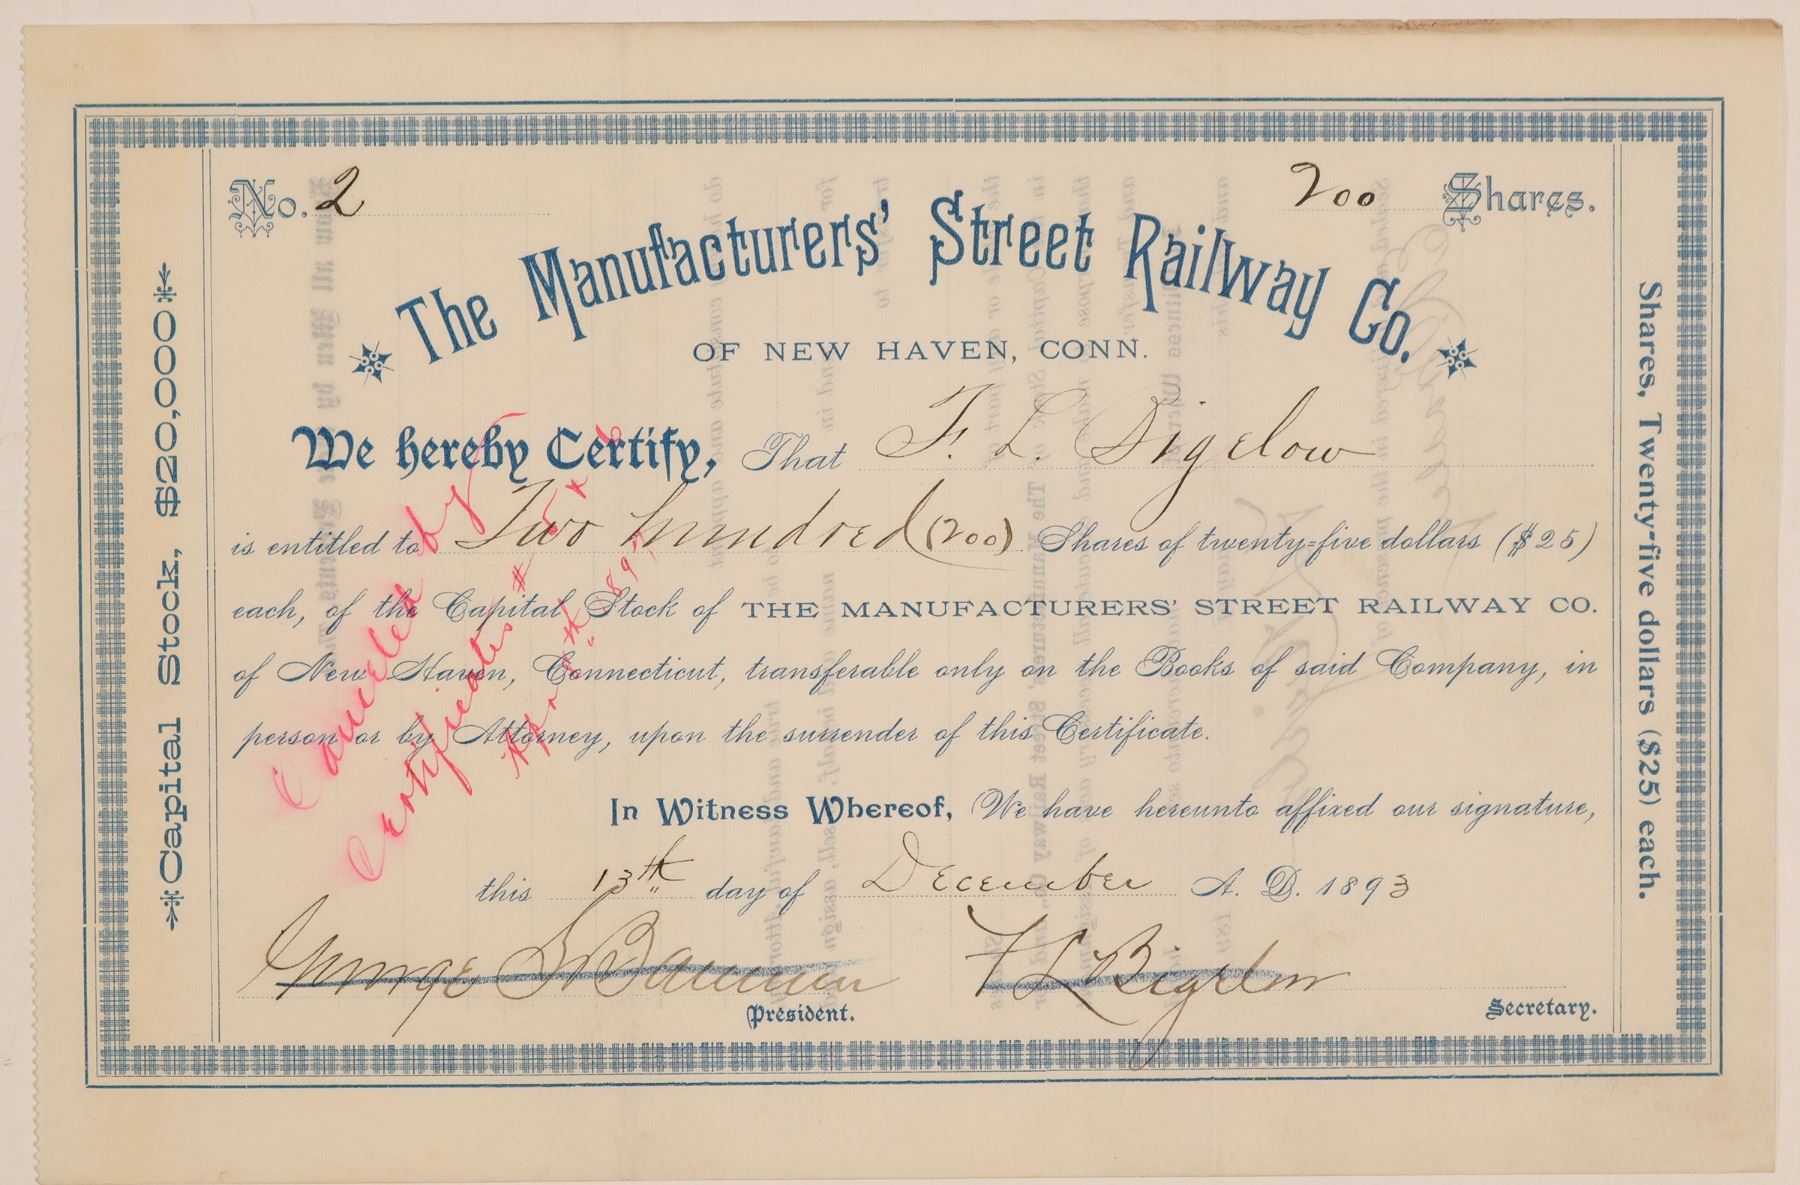 No. 2
200 Shares.
The Manufacturers' Street Railway Co.
OF NEW HAVEN, CONN.
We hereby Certify, That F. L. Bigelow
is entitled to Two hundred (200) Shares of twenty=five dollars ($25)
each, of the Capital Stock of THE MANUFACTURERS' STREET RAILWAY CO.
of New Haven, Connecticut, transferable only on the Books of said Company, in
person or by Attorney, upon the surrender of this Certificate.
In Witness Whereof, We have hereunto affixed our signature,
this 13th day of December A. D. 1893
George S Barnum
F L Bigelow
President.
Secretary.
Capital Stock, $20,000
Shares, Twenty-five dollars ($25) each.
Canceled by
Certificates #